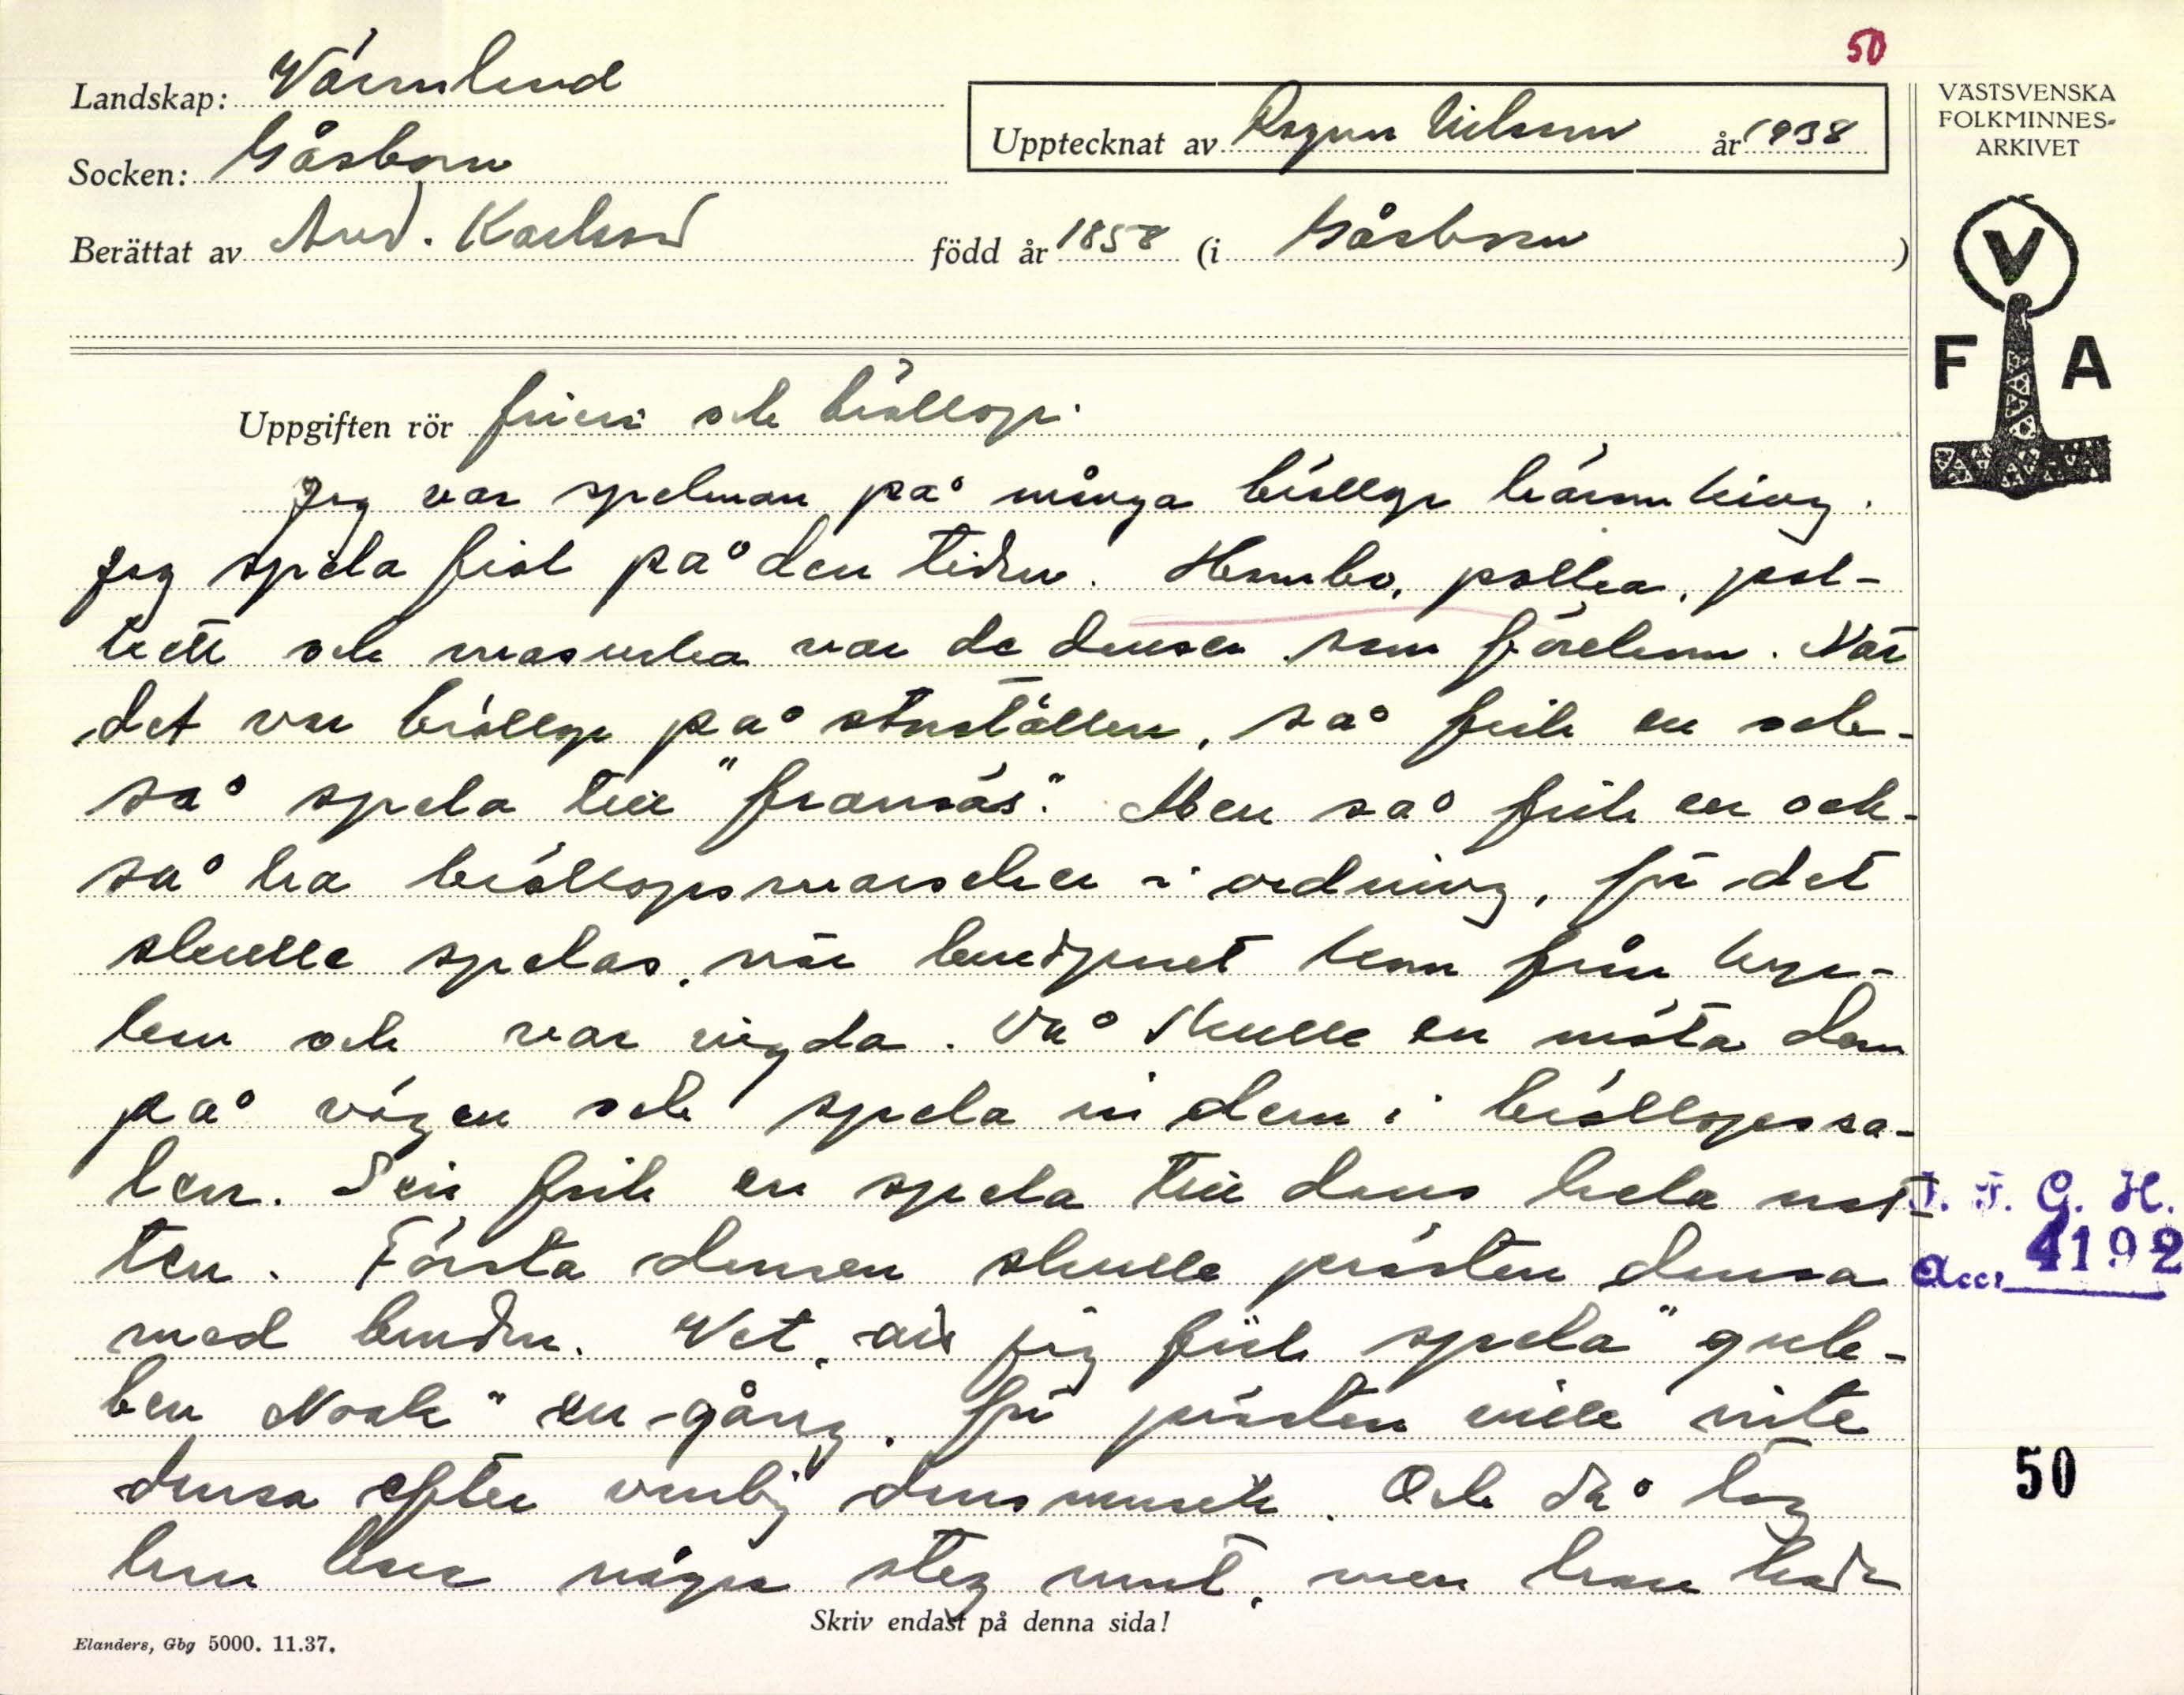 50
Landskap: Värmland
Socken: Gåsborn
Upptecknat av Ragnar Nilsson år 1938
Berättat av And. Karlsson född år 1858 (i Gåsborn)
VÄSTSVENSKA
FOLKMINNES-
ARKIVET
V
F A
Uppgiften rör frieri och bröllop.
Jag var spelman på många bröllop häromkring.
Jag spela fiol på den tiden. Hambo, polka, pol-
kett och masurka var de danser som förekom. När
det var bröllop på storställen, så fick en ock-
så spela till "fransäs". Men så fick en ock-
så ha bröllopsmarscher i ordning, för det
skulle spelas, när brudparet kom från kyr-
kan och var vigda. Då skulle en möta dem
på vägen och spela in dem i bröllopssa-
len. Sen fick en spela till dans hela nat-
ten. Första dansen skulle prästen dansa
med bruden. Vet, att jag fick spela "gub-
ben Noak" en gång, för prästen ville inte
dansa efter vanlig dansmusik. Och då tog
han bara några steg runt, men han hade
I. F. G. H.
Acc. 4192
50
Skriv endast på denna sida!
Elanders, Gbg 5000. 11.37.